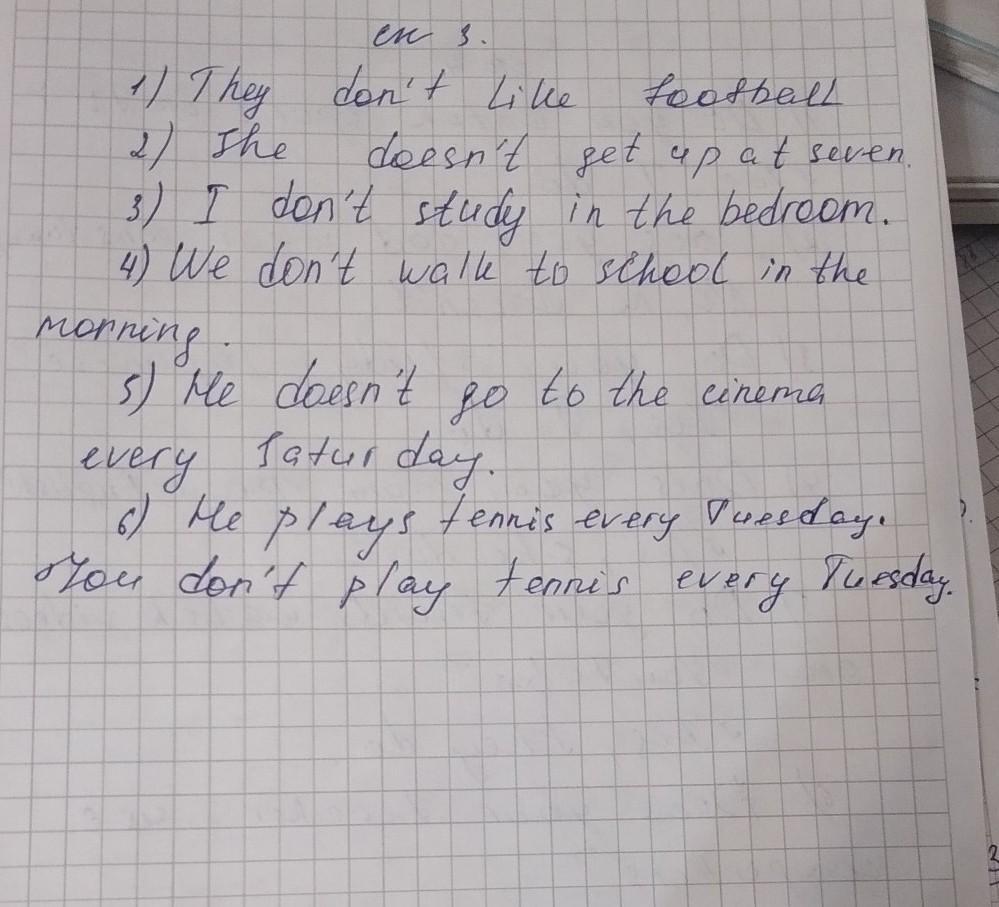 ex 3.
1) They don't like football
2) She doesn't get up at seven.
3) I don't study in the bedroom.
4) We don't walk to school in the
morning.
5) He doesn't go to the cinema
every Saturday.
6) He plays tennis every Tuesday.
You don't play tennis every Tuesday.
3